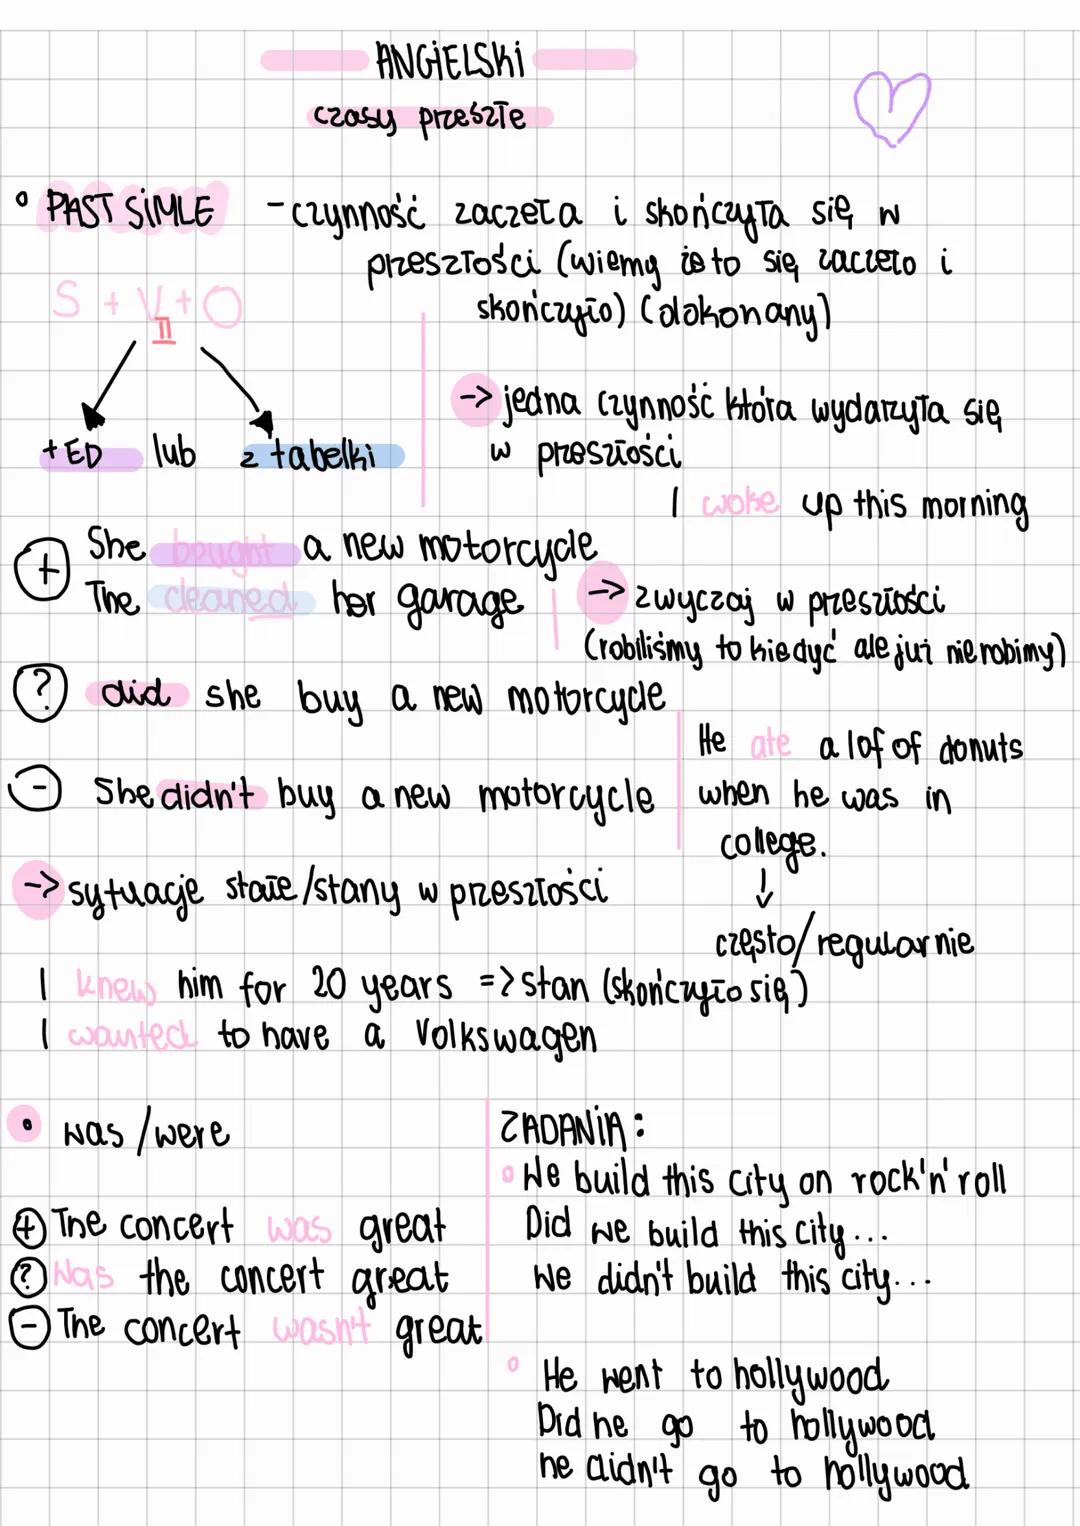 ANGIELSKI
czasy przeszłe
• PAST SIMLE - czynność zaczeta i skończyła się w
przeszłości (wiemy że to się zaczeło i
skończyło) (dokonany)
S + V + O
II
+ED lub z tabelki
-> jedna czynność która wydarzyła się
w przeszłości
I woke up this morning
+ She bought a new motorcycle
The cleaned her garage
-> zwyczaj w przeszłości
(robiliśmy to kiedyć ale już nie robimy)
? did she buy a new motorcycle
- She didn't buy a new motorcycle
He ate a lof of donuts
when he was in
college.
↓
często/regularnie
-> sytuacje stałe/stany w przeszłości
I knew him for 20 years => stan (skończyło się)
I wanted to have a Volkswagen
• was/were
+ The concert was great
? Was the concert great
- The concert wasn't great
ZADANIA:
• We build this city on rock'n'roll
Did we build this city...
We didn't build this city...
• He went to hollywood
Did he go to hollywood
he didn't go to hollywood